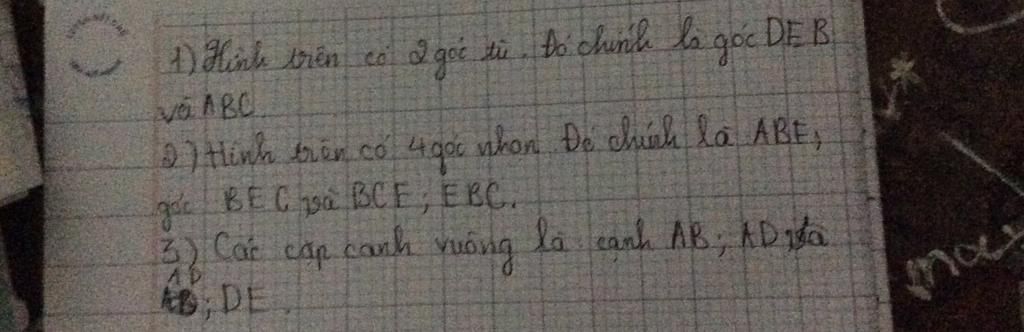 1) Hình trên có 2 góc tù. Đó chính là góc DEB
và ABC.
2) Hình trên có 4 góc nhọn. Đó chính là ABE,
góc BEC và BCE; EBC.
3) Các cặp cạnh vuông là cạnh AB; AD và
AD
; DE.